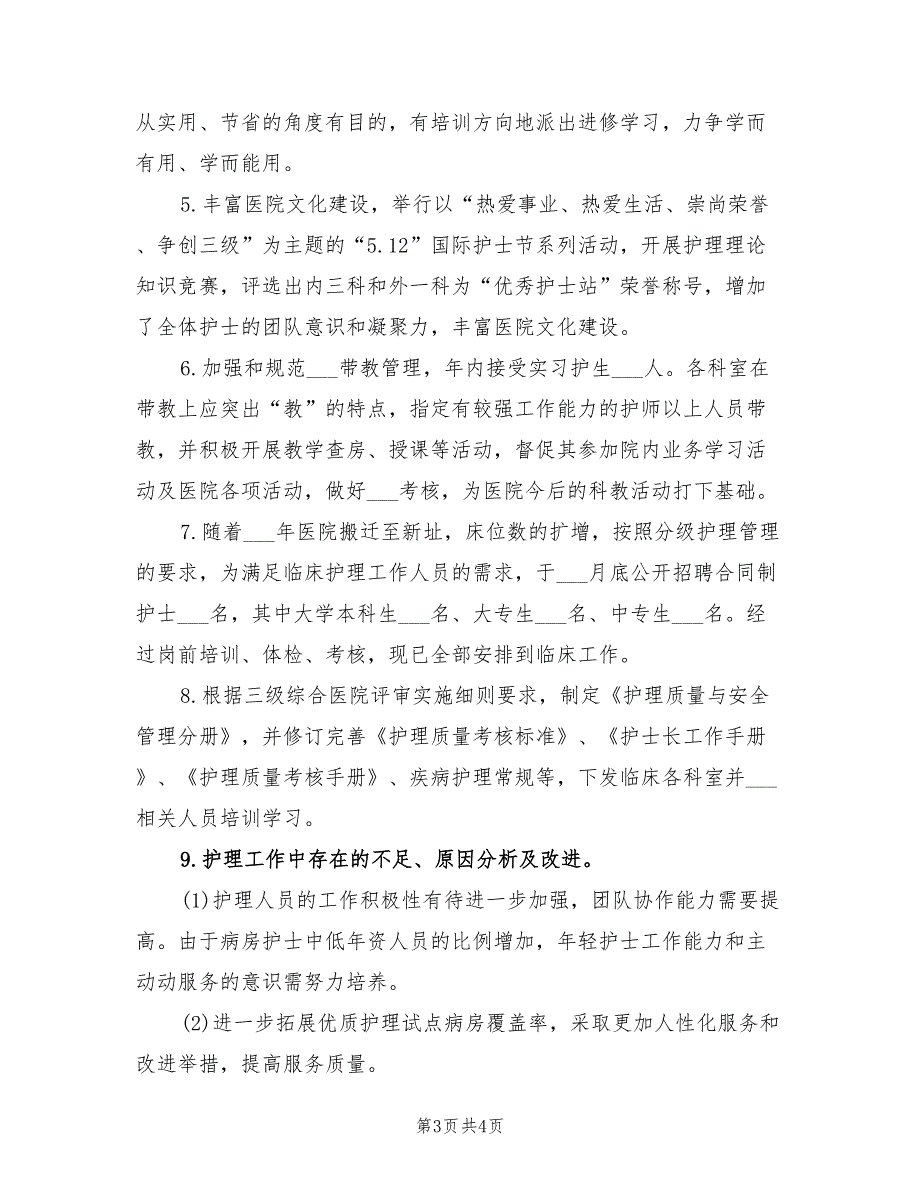 从实用、节省的角度有目的，有培训方向地派出进修学习，力争学而
有用、学而能用。
5.丰富医院文化建设，举行以“热爱事业、热爱生活、崇尚荣誉
、争创三级”为主题的“5.12”国际护士节系列活动，开展护理理论
知识竞赛，评选出内三科和外一科为“优秀护士站”荣誉称号，增加
了全体护士的团队意识和凝聚力，丰富医院文化建设。
6.加强和规范___带教管理，年内接受实习护生___人。各科室在
带教上应突出“教”的特点，指定有较强工作能力的护师以上人员带
教，并积极开展教学查房、授课等活动，督促其参加院内业务学习活
动及医院各项活动，做好___考核，为医院今后的科教活动打下基础。
7.随着___年医院搬迁至新址，床位数的扩增，按照分级护理管理
的要求，为满足临床护理工作人员的需求，于___月底公开招聘合同制
护士___名，其中大学本科生___名、大专生___名、中专生___名。经
过岗前培训、体检、考核，现已全部安排到临床工作。
8.根据三级综合医院评审实施细则要求，制定《护理质量与安全
管理分册》，并修订完善《护理质量考核标准》、《护士长工作手册
》、《护理质量考核手册》、疾病护理常规等，下发临床各科室并___
相关人员培训学习。
9.护理工作中存在的不足、原因分析及改进。
(1)护理人员的工作积极性有待进一步加强，团队协作能力需要提
高。由于病房护士中低年资人员的比例增加，年轻护士工作能力和主
动动服务的意识需努力培养。
(2)进一步拓展优质护理试点病房覆盖率，采取更加人性化服务和
改进举措，提高服务质量。
第3页共4页